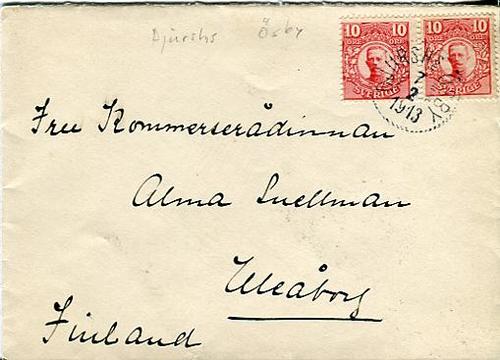 Djursh Ösby
10 10 10 10
SVERIGE
DJURSH
7
2
1913
Fru Kommerserådinnan
Alma Snellman
Uleåborg
Finland